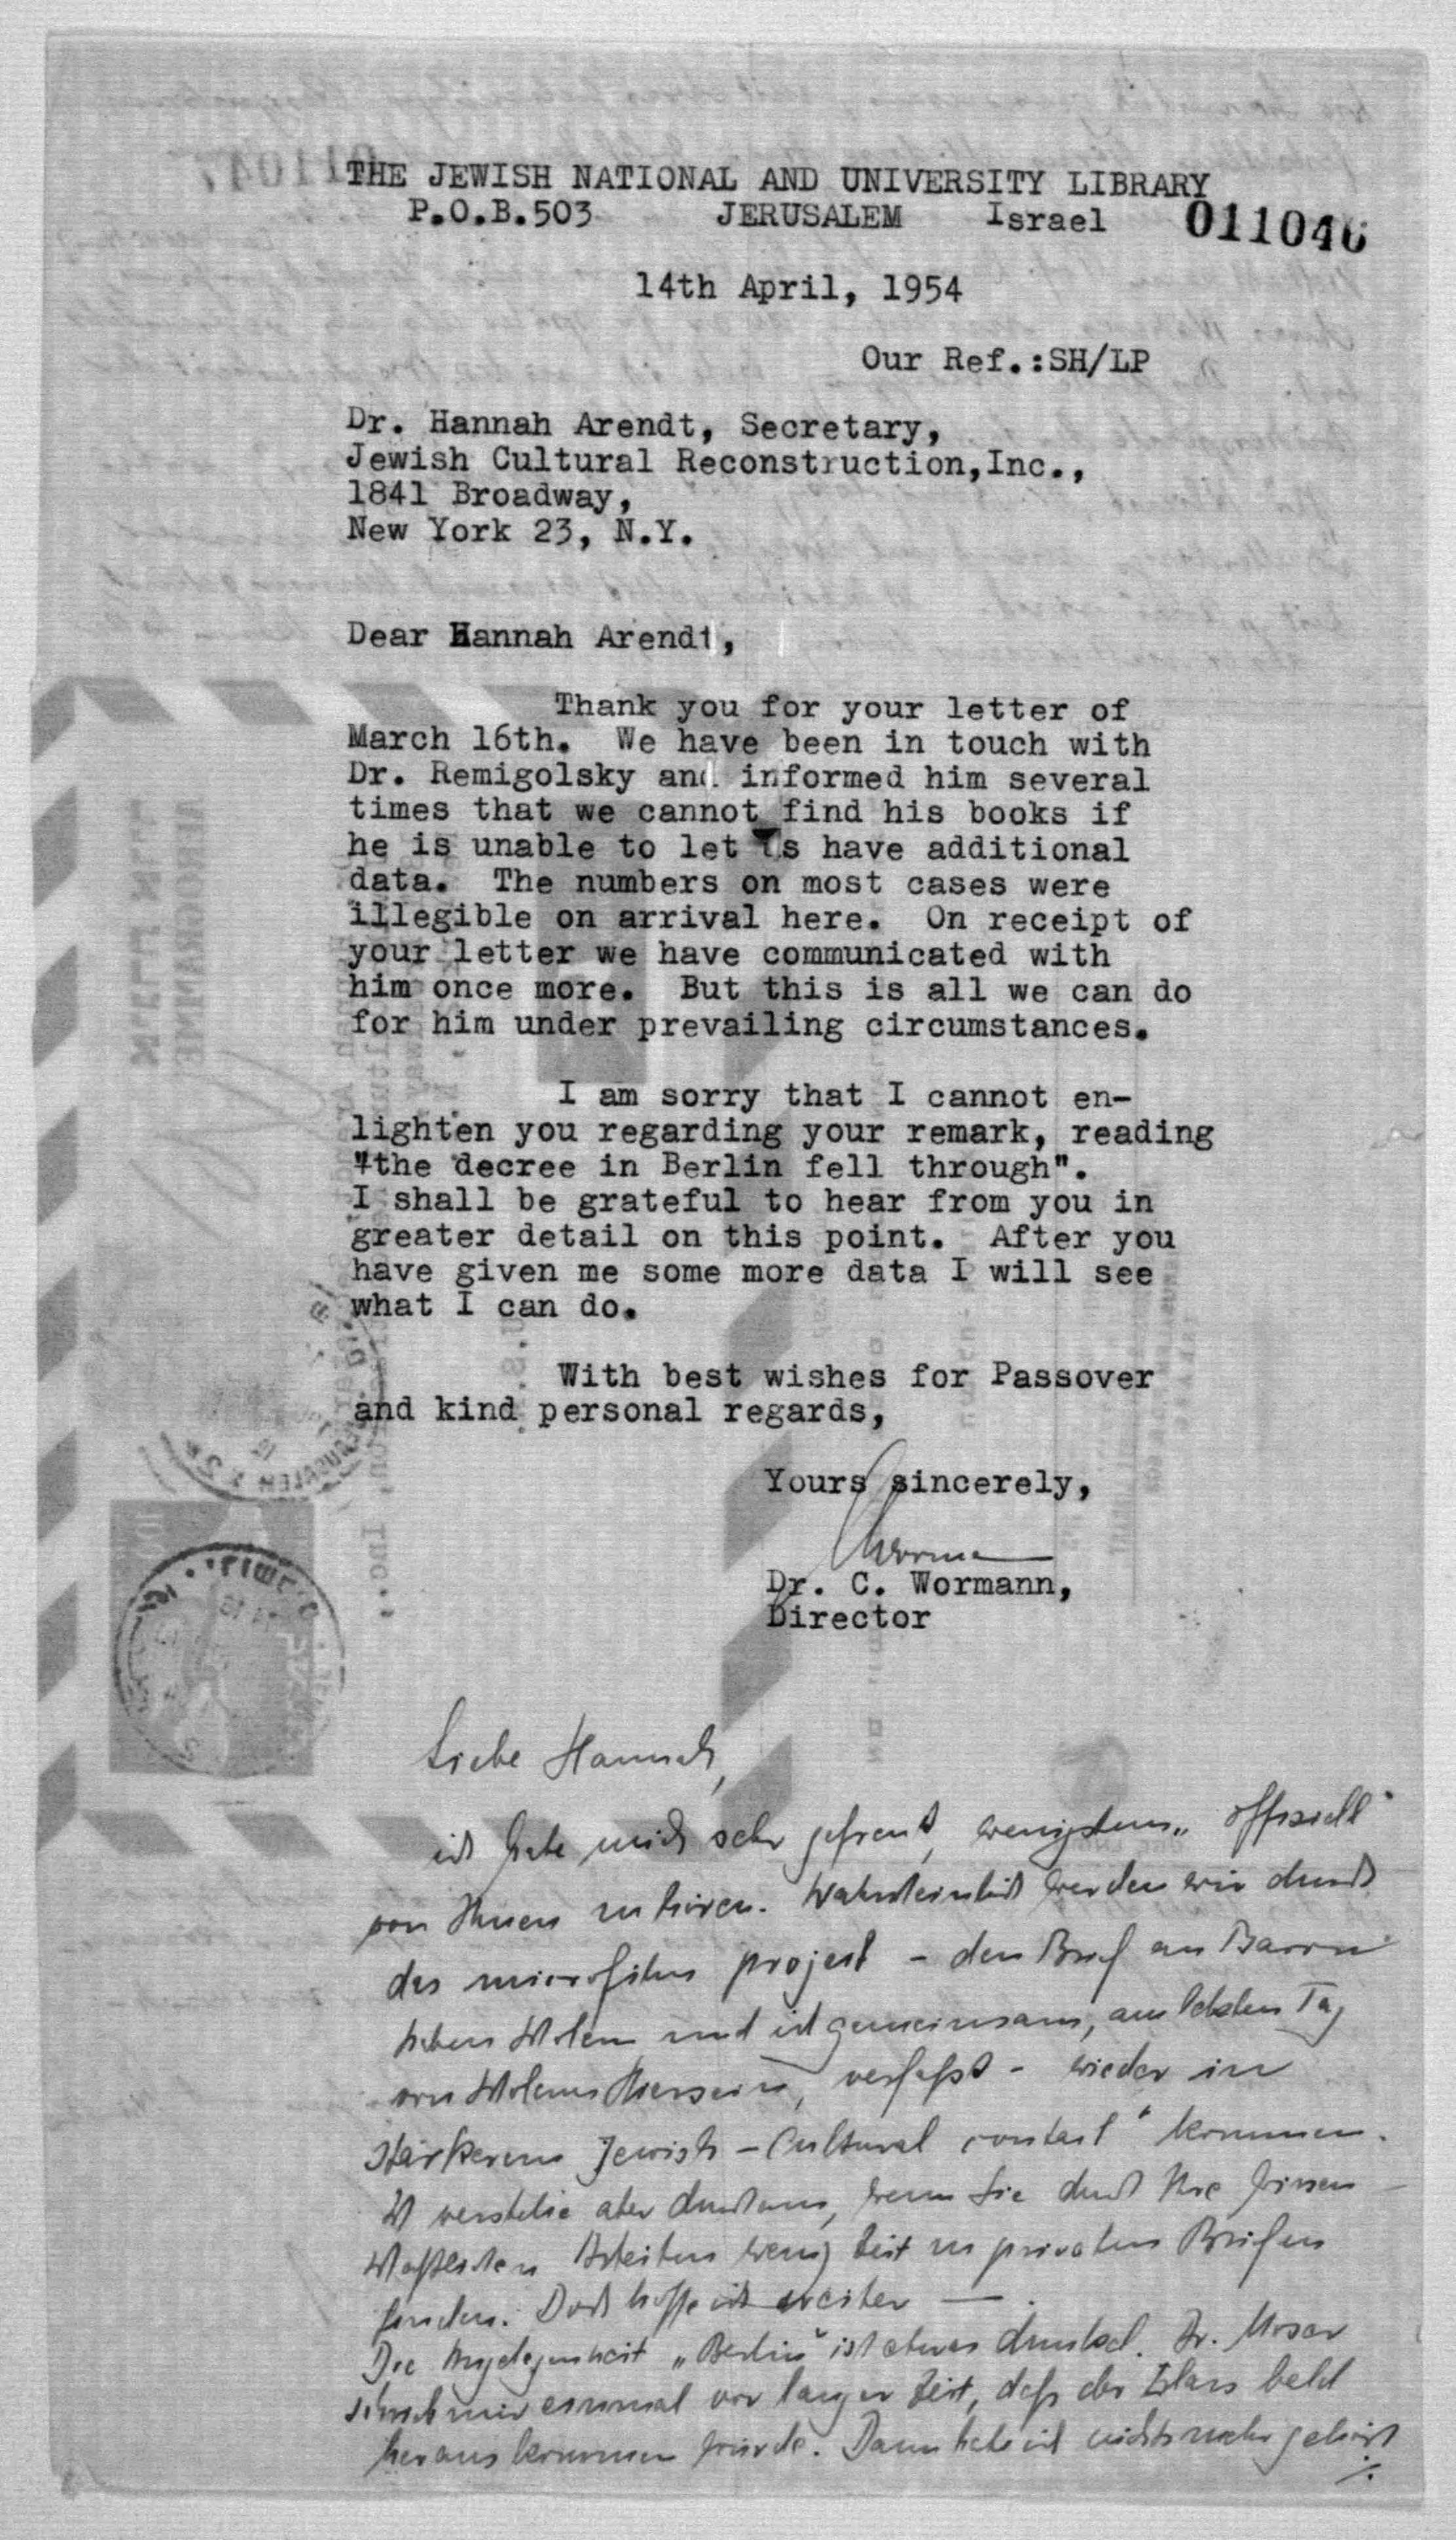 THE JEWISH NATIONAL AND UNIVERSITY LIBRARY
P.O.B.503 JERUSALEM Israel 011046
14th April, 1954
Our Ref.:SH/LP
Dr. Hannah Arendt, Secretary,
Jewish Cultural Reconstruction,Inc.,
1841 Broadway,
New York 23, N.Y.
Dear Hannah Arendt,
Thank you for your letter of
March 16th. We have been in touch with
Dr. Remigolsky and informed him several
times that we cannot find his books if
he is unable to let us have additional
data. The numbers on most cases were
illegible on arrival here. On receipt of
your letter we have communicated with
him once more. But this is all we can do
for him under prevailing circumstances.
I am sorry that I cannot en-
lighten you regarding your remark, reading
"the decree in Berlin fell through".
I shall be grateful to hear from you in
greater detail on this point. After you
have given me some more data I will see
what I can do.
With best wishes for Passover
and kind personal regards,
Yours sincerely,
Wormann
Dr. C. Wormann,
Director
Liebe Hannah,
ich habe mich sehr gefreut, wenigstens „offiziell"
von Ihnen zu hören. Wahrscheinlich werden wir durch
das microfilm project – den Brief an Baron
haben und ich gemeinsam, am letzten Tag
von Hierseins, verfaßt – wieder in
stärkeren Jewish-Cultural contact" kommen.
Ich verstehe aber durchaus, wenn Sie durch Ihre wissen-
schaftlichen Arbeiten wenig Zeit zu privaten Briefen
finden. Doch hoffe ich weiter —.
Die Angelegenheit „Berlin" ist etwas dunkel. Dr. Moser
schrieb mir einmal vor langer Zeit, daß der Erlass bald
herauskommen würde. Dann habe ich nichts mehr gehört
./.